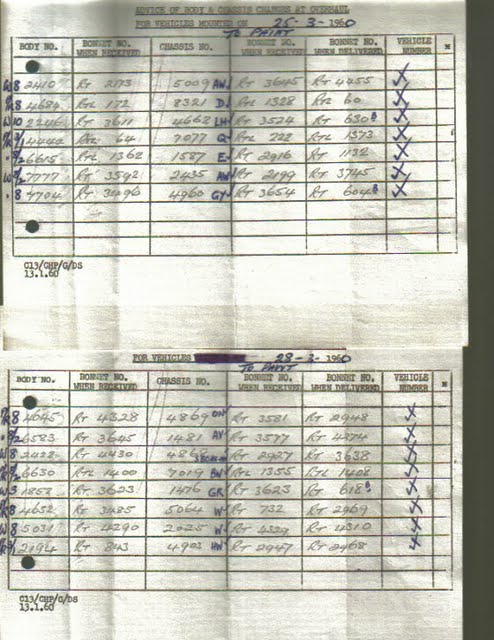 ADVICE OF BODY & CHASSIS CHANGES AT OVERHAUL
FOR VEHICLES MOUNTED ON 25-3-1960
TO PAINT
BODY NO. BONNET NO. WHEN RECEIVED CHASSIS NO. BONNET NO. WHEN RECEIVED BONNET NO. WHEN DELIVERED VEHICLE NUMBER
W8 2410 RT 2173 5009 AW RT 3645 RT 4455 X
8 4684 RTL 172 8321 D RTL 1328 RTL 60 X
W10 2246 RT 3611 4662 LH RT 3524 RT 630 B X
4444 RTL 64 7077 Q RTL 722 RTL 1373 X
6615 RTL 1362 1587 E RT 2916 RT 1132 X
W 7777 RT 3592 2435 AW RT 2199 RT 3745 X
8 7704 RT 3496 4960 GY RT 3654 RT 604 B X
C13/CHP/G/DS
13.1.60
FOR VEHICLES 28-3-1960
TO PAINT
BODY NO. BONNET NO. WHEN RECEIVED CHASSIS NO. BONNET NO. WHEN RECEIVED BONNET NO. WHEN DELIVERED VEHICLE NUMBER
8 4645 RT 4328 4869 ON RT 3581 RT 2948 X
6583 RT 3645 1481 AV RT 3577 RT 4374 X
W8 2422 RT 4430 RT 2927 RT 3638 X
6630 RTL 1400 7019 BW RTL 1355 RTL 1408 X
W3 1852 RT 3623 1476 GR RT 3623 RT 618 B X
8 4652 RT 3485 5064 W RT 732 RT 2969 X
W8 5031 RT 4290 2025 W RT 4329 RT 4310 X
2194 RT 843 4903 HW RT 2947 RT 2968 X
C13/CHP/G/DS
13.1.60